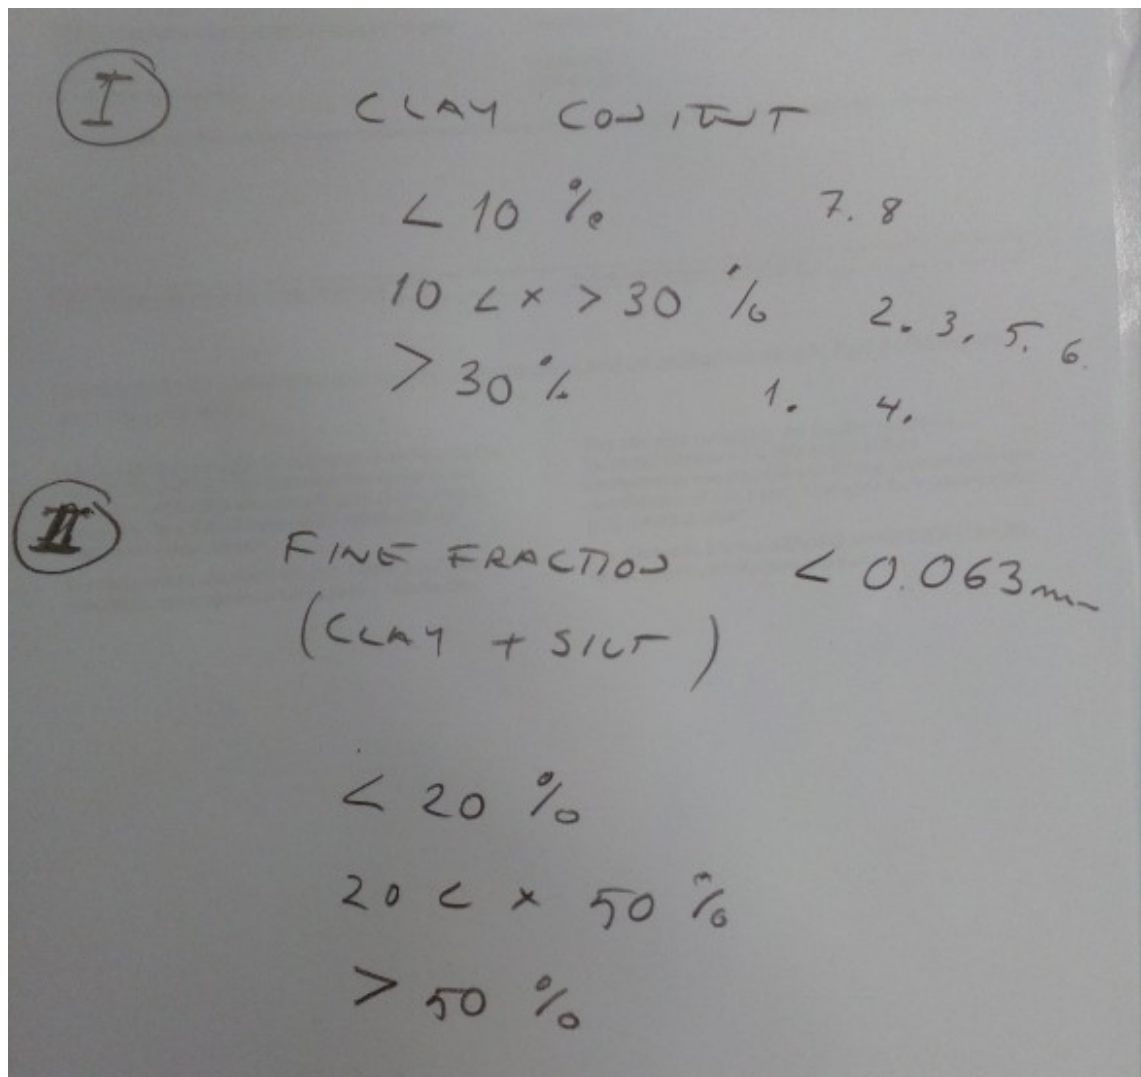 I CLAY CONTENT
< 10 % 7. 8
10 < x > 30 % 2. 3. 5. 6.
> 30 % 1. 4.
II FINE FRACTION < 0.063mm
(CLAY + SILT)
< 20 %
20 < x 50 %
> 50 %